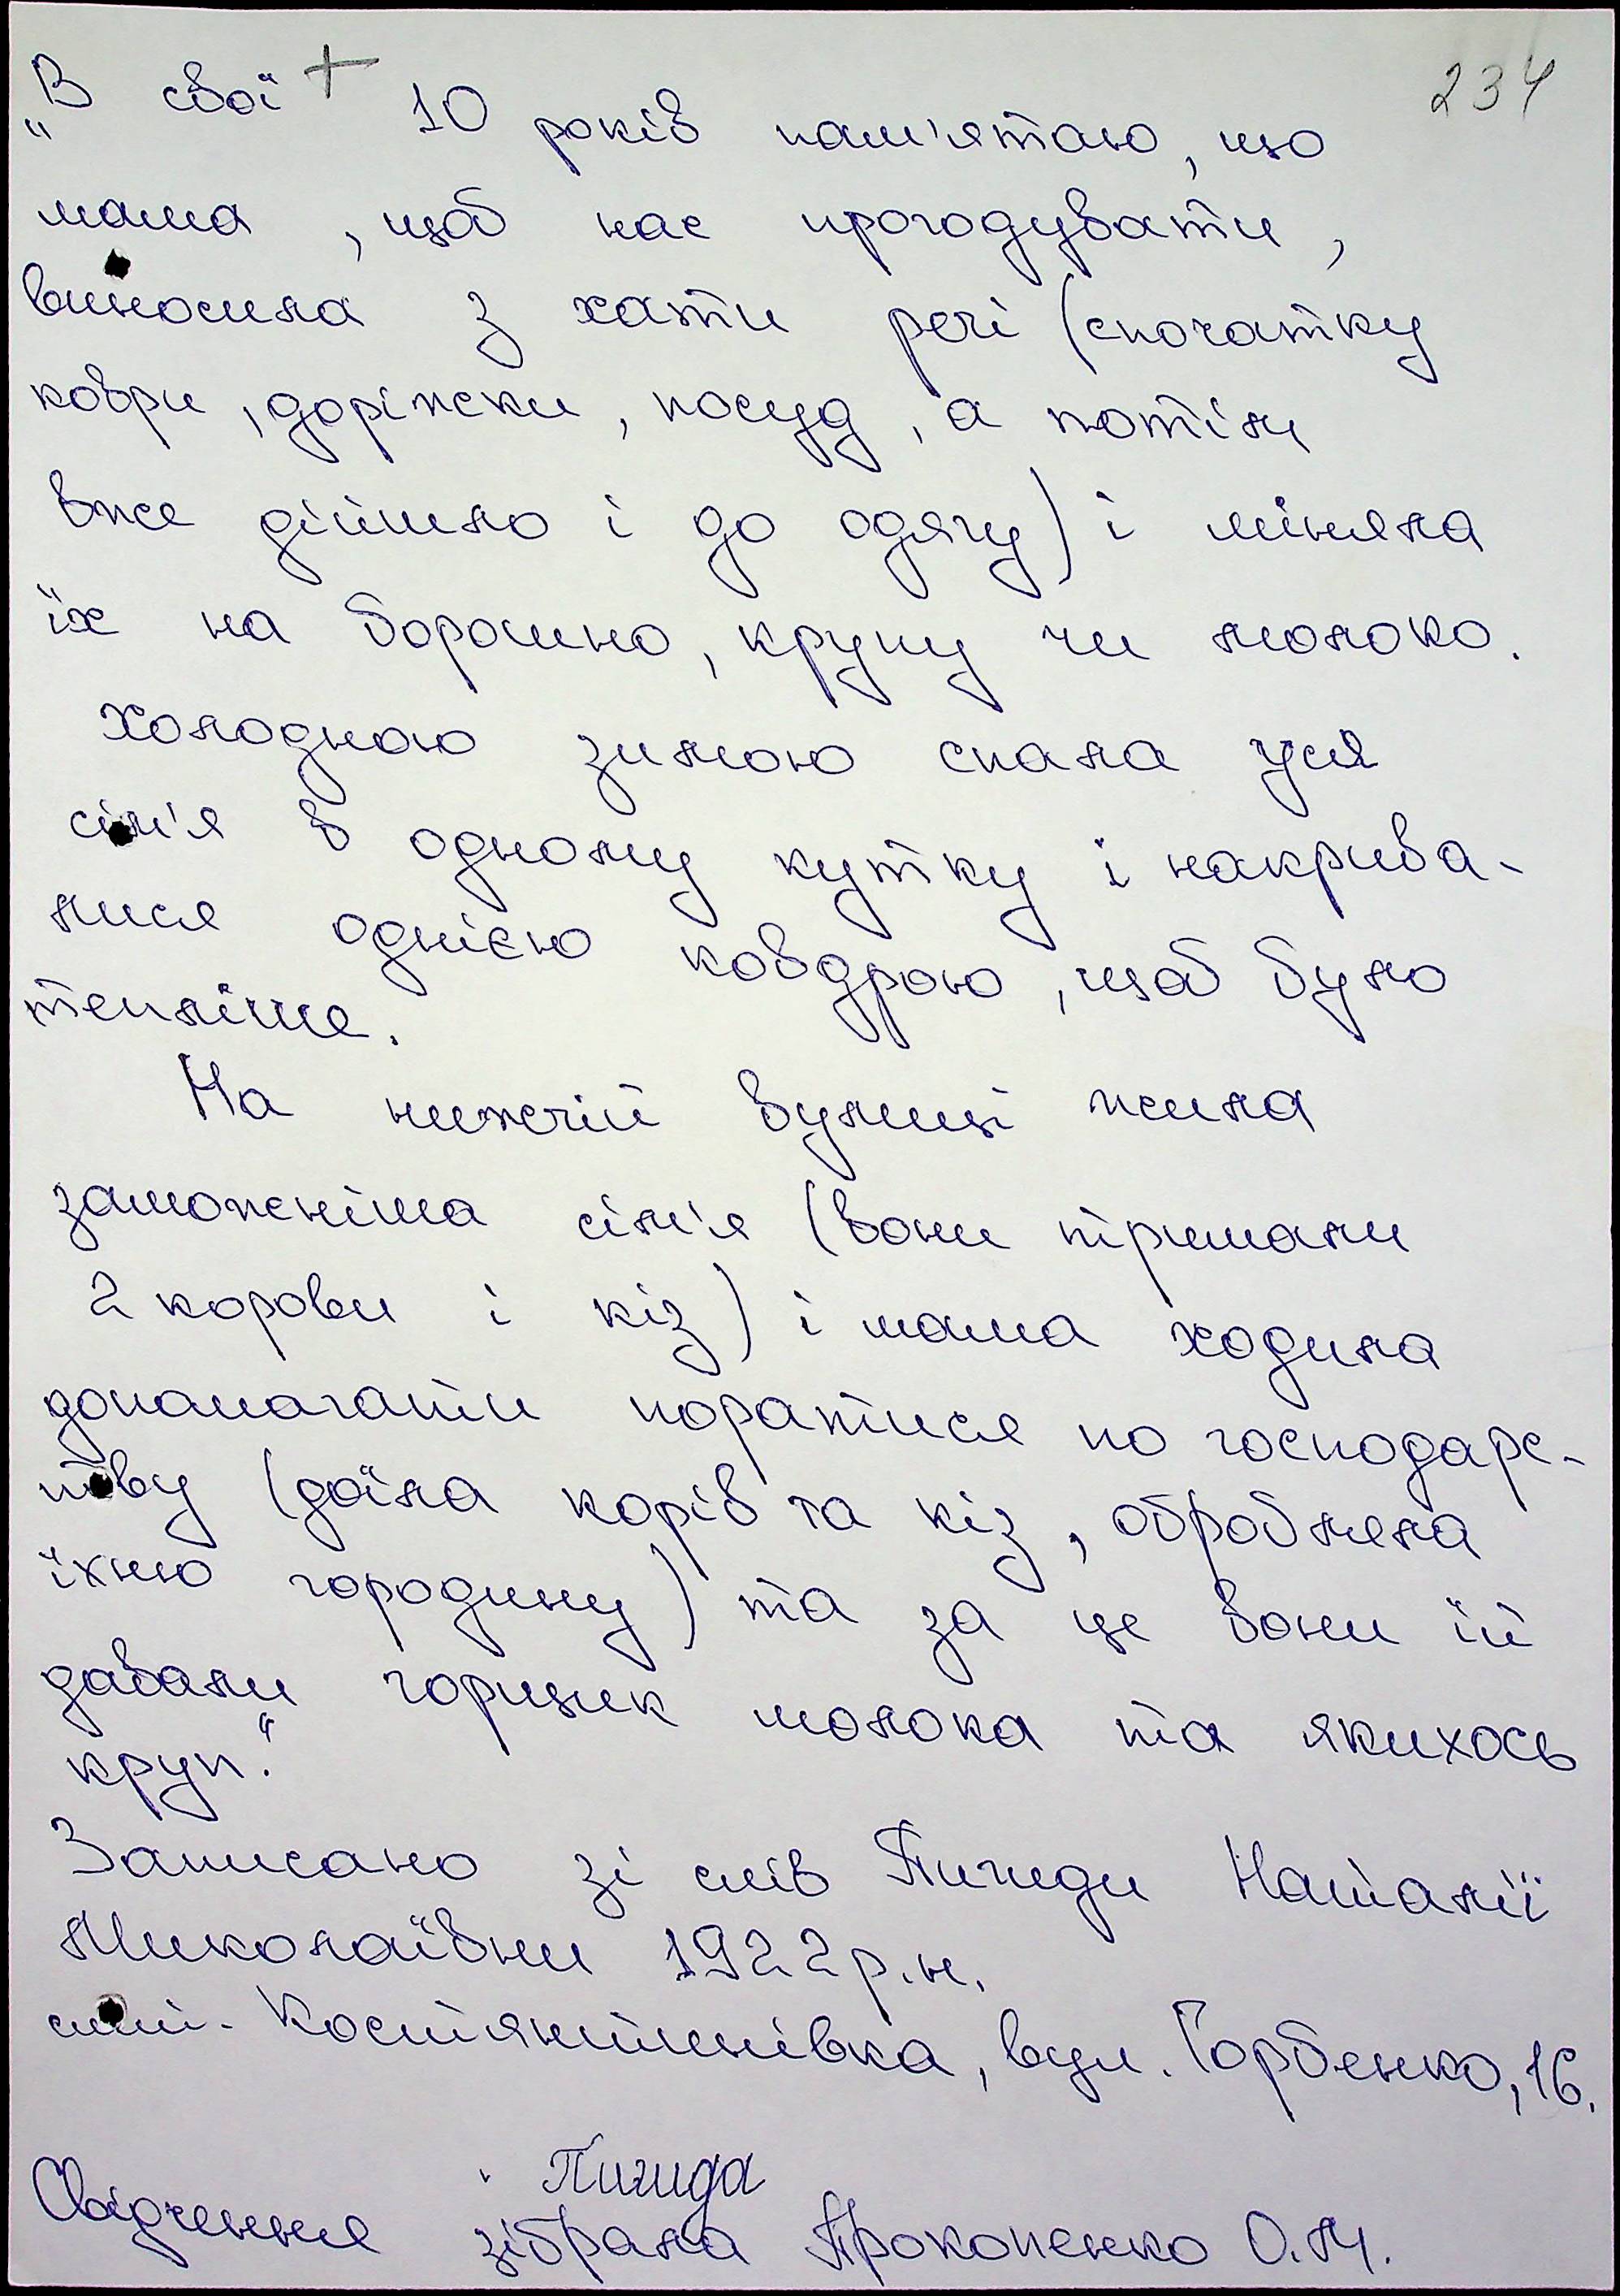 234
„В свої + 10 років пам'ятаю, що
мама, щоб нас прогодувати,
виносила з хати речі (спочатку
коври, доріжки, посуд, а потім
вже дійшло і до одягу) і міняла
їх на борошно, крупу чи молоко.
Холодною зимою спала уся
сім'я в одному кутку і накрива-
лися однією ковдрою, щоб було
тепліше.
На нижчій вулиці жила
заможніша сім'я (вони тримали
2 корови і кіз) і мама ходила
допомагати поратися по господарс-
тву (доїла корів та кіз, обробляла
їхню городину) та за це вони їй
давали горщик молока та якихось
круп."
Записано зі слів Пигиди Наталії
Миколаївни 1922р.н.
смт. Костянтинівка, вул. Горбенко, 16.
Пигида
Свідчення зібрала Прокопенко О.М.